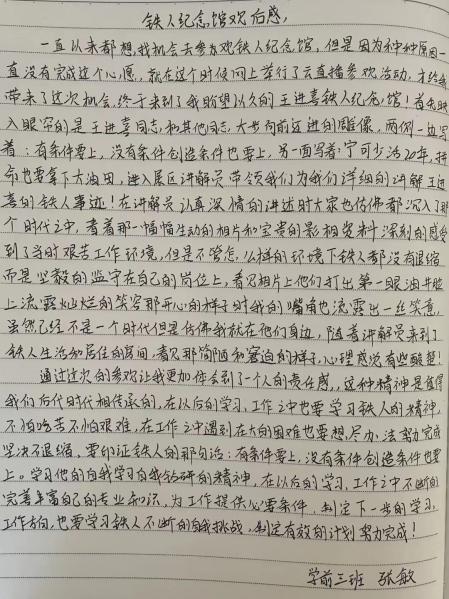 铁人纪念馆观后感,
一直以来都想找机会去参观铁人纪念馆，但是因为种种原因一
直没有完成这个心愿，就在这个时候网上举行了云直播参观活动，才给我
带来了这次机会，终于来到了我盼望以久的王进喜铁人纪念馆！首先映
入眼帘的是王进喜同志和其他同志，大步向前迈进的雕像，两侧一边写
着：有条件要上，没有条件创造条件也要上，另一面写着：宁可少活20年，拼
命也要拿下大油田，进入展区讲解员带领我们为我们详细的讲解王进
喜的铁人事迹！在讲解员认真深情的讲述时大家也仿佛都沉入了那
个时代之中，看着那一幅幅生动的相片和宝贵的影相资料深刻的感受
到了当时艰苦工作环境，但是不管怎么样的环境下铁人都没有退缩
而是坚毅的坚守在自己的岗位上，看见相片上他们打出第一眼油井脸
上流露灿烂的笑容那开心的样子时我的嘴角也流露出一丝笑意，
虽然已经不是一个时代但是仿佛我就在他们身边，随着讲解员来到了
铁人生活和居住的房间，看见那简陋和窘迫的样子，心理感觉有些酸楚！
通过这次的参观让我更加体会到了一个人的责任感，这种精神是值得
我们后代时代相传承的，在以后的学习、工作之中也要学习铁人的精神，
不怕吃苦不怕艰难，在工作之中遇到在大的困难也要想尽办法努力完成
坚决不退缩，要印证铁人的那句话：有条件要上，没有条件创造条件也要
上。学习他的自我学习自我钻研的精神，在以后的学习、工作之中不断的
完善丰富自己的专业知识，为工作提供必要条件，制定下一步的学习、
工作方向，也要学习铁人不断的自我挑战，制定有效的计划努力完成！
学前三班 张敏